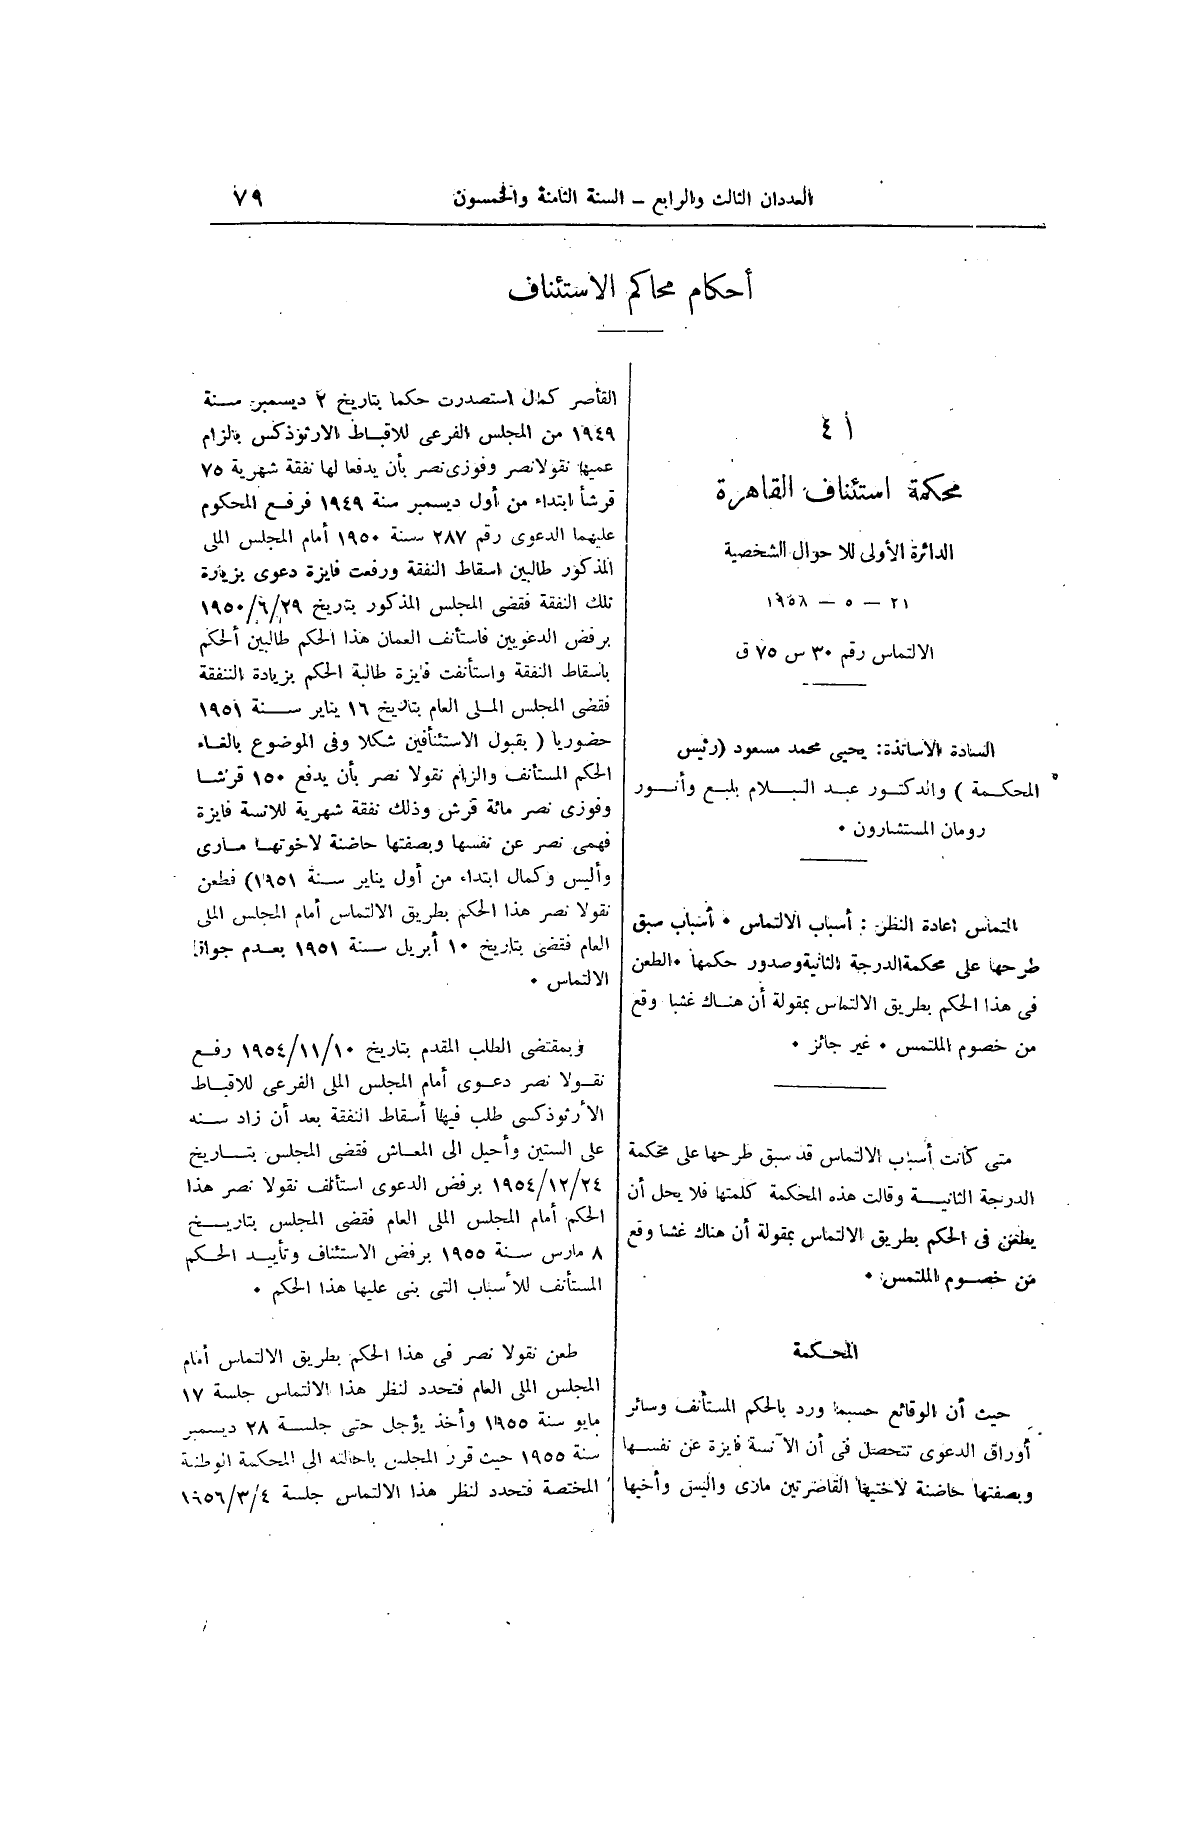 العددان الثالث والرابع – السنة الثامنة والخمسون
٧٩
أحكام محاكم الاستئناف
٤أ
محكمة استئناف القاهرة
الدائرة الأولى للاحوال الشخصية
٢١ – ٥ – ١٩٥٨
الالتماس رقم ٣٠ س ٧٥ ق
السادة الأساتذة: يحيى محمد مسعود (رئيس
المحكمة ) والدكتور عبد السلام بلبع وأنور
رومان المستشارون .
التماس اعادة النظر : أسباب الالتماس . أسباب سبق
طرحها على محكمة الدرجة الثانية وصدور حكمها . الطعن
فى هذا الحكم بطريق الالتماس بمقولة أن هناك غشا وقع
من خصوم الملتمس . غير جائز .
متى كانت أسباب الالتماس قد سبق طرحها على محكمة
الدرجة الثانية وقالت هذه المحكمة كلمتها فلا يحل أن
يطعن فى الحكم بطريق الالتماس بمقولة أن هناك غشا وقع
من خصوم الملتمس .
المحكمة
حيث أن الوقائع حسبما ورد بالحكم المستأنف وسائر
أوراق الدعوى تتحصل فى أن الآنسة فايزة عن نفسها
وبصفتها حاضنة لاختيها القاصرتين مارى واليس وأخيها
القاصر كمال استصدرت حكما بتاريخ ٢ ديسمبر سنة
١٩٤٩ من المجلس الفرعى للاقباط الارثوذكس بالزام
عميها نقولا نصر وفوزى نصر بأن يدفعا لها نفقة شهرية ٧٥
قرشأ ابتداء من أول ديسمبر سنة ١٩٤٩ فرفع المحكوم
عليهما الدعوى رقم ٢٨٧ سنة ١٩٥٠ أمام المجلس الملى
المذكور طالبين اسقاط النفقة ورفعت فايزة دعوى بزيادة
تلك النفقة فقضى المجلس المذكور بتاريخ ١٩٥٠/٦/٢٩
برفض الدعويين فاستأنف العمان هذا الحكم طالبين الحكم
باسقاط النفقة واستأنفت فايزة طالبة الحكم بزيادة النفقة
فقضى المجلس الملى العام بتاريخ ١٦ يناير سنة ١٩٥١
حضوريا ( بقبول الاستئنافين شكلا وفى الموضوع بالغاء
الحكم المستأنف والزام نقولا نصر بأن يدفع ١٥٠ قرشا
وفوزى نصر مائة قرش وذلك نفقة شهرية للانسة فايزة
فهمى نصر عن نفسها وبصفتها حاضنة لاخوتها مارى
وأليس وكمال ابتداء من أول يناير سنة ١٩٥١) فطعن
نقولا نصر هذا الحكم بطريق الالتماس أمام المجلس الملى
العام فقضى بتاريخ ١٠ أبريل سنة ١٩٥١ بعدم جواز
الالتماس .
وبمقتضى الطلب المقدم بتاريخ ١٩٥٤/١١/١٠ رفع
نقولا نصر دعوى أمام المجلس الملى الفرعى للاقباط
الأرثوذكسى طلب فيها أسقاط النفقة بعد أن زاد سنه
على الستين وأحيل الى المعاش فقضى المجلس بتاريخ
١٩٥٤/١٢/٢٤ برفض الدعوى استأنف نقولا نصر هذا
الحكم أمام المجلس الملى العام فقضى المجلس بتاريخ
٨ مارس سنة ١٩٥٥ برفض الاستئناف وتأييد الحكم
المستأنف للأسباب التى بنى عليها هذا الحكم .
طعن نقولا نصر فى هذا الحكم بطريق الالتماس أمام
المجلس الملى العام فتحدد لنظر هذا الالتماس جلسة ١٧
مايو سنة ١٩٥٥ وأخذ يؤجل حتى جلسة ٢٨ ديسمبر
سنة ١٩٥٥ حيث قرر المجلس باحالته الى المحكمة الوطنية
المختصة فتحدد لنظر هذا الالتماس جلسة ١٩٥٦/٣/٤